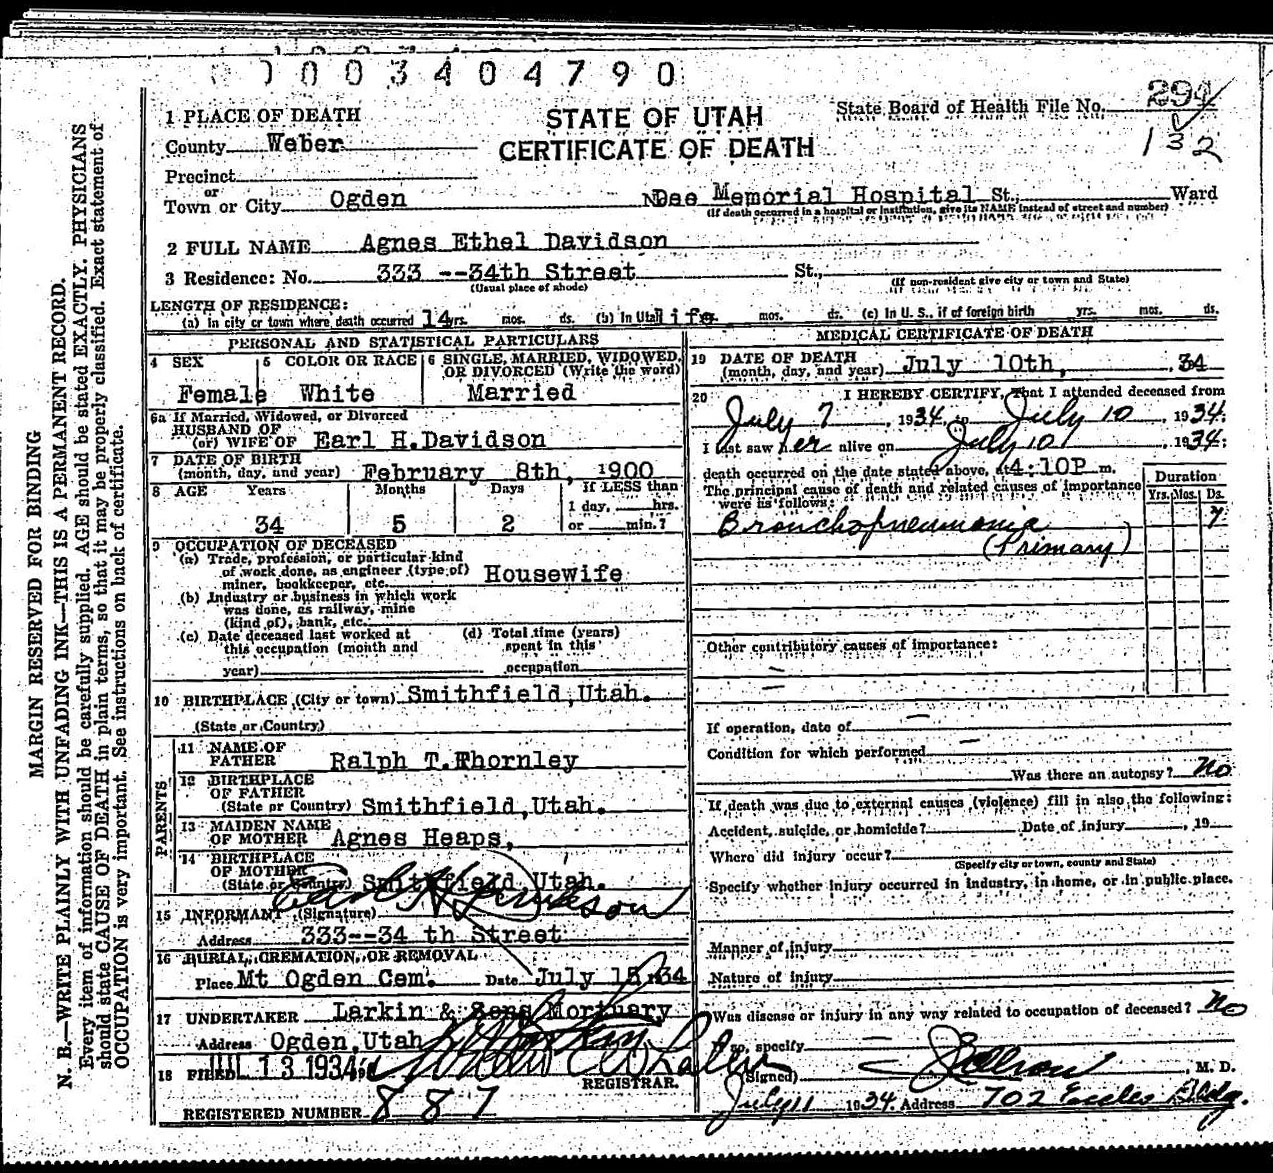 1003404790
STATE OF UTAH
CERTIFICATE OF DEATH
State Board of Health File No. 294
132
1 PLACE OF DEATH
County Weber
Precinct
or
Town or City Ogden No Dee Memorial Hospital St., Ward
(If death occurred in a hospital or institution, give its NAME instead of street and number)
2 FULL NAME Agnes Ethel Davidson
3 Residence: No. 333 --34th Street St.,
(Usual place of abode) (If non-resident give city or town and State)
LENGTH OF RESIDENCE:
(a) In city or town where death occurred 14 yrs. mos. ds. (b) In Utah life mos. ds. (c) In U. S., if of foreign birth yrs. mos. ds.
PERSONAL AND STATISTICAL PARTICULARS
4 SEX 5 COLOR OR RACE 6 SINGLE, MARRIED, WIDOWED, OR DIVORCED (Write the word)
Female White Married
6a If Married, Widowed, or Divorced
HUSBAND OF
(or) WIFE OF Earl H.Davidson
7 DATE OF BIRTH
(month, day, and year) February 8th, 1900
8 AGE Years Months Days If LESS than
1 day, hrs.
34 5 2 or min.?
9 OCCUPATION OF DECEASED
(a) Trade, profession, or particular kind
of work done, as engineer (type of)
miner, bookkeeper, etc. Housewife
(b) Industry or business in which work
was done, as railway, mine
(kind of), bank, etc.
(c) Date deceased last worked at
this occupation (month and
year)
(d) Total time (years)
spent in this
occupation
10 BIRTHPLACE (City or town) Smithfield,Utah.
(State or Country)
PARENTS
11 NAME OF
FATHER Ralph T.Thornley
12 BIRTHPLACE
OF FATHER
(State or Country) Smithfield,Utah.
13 MAIDEN NAME
OF MOTHER Agnes Heaps,
14 BIRTHPLACE
OF MOTHER
(State or Country) Smithfield,Utah.
15 INFORMANT (Signature) Earl H Davidson
Address 333--34 th Street
16 BURIAL, CREMATION, OR REMOVAL
Place Mt Ogden Cem. Date July 15, 34
17 UNDERTAKER Larkin & Sons Mortuary
Address Ogden,Utah
18 FILED JUL 13 1934
REGISTRAR.
REGISTERED NUMBER 887
MEDICAL CERTIFICATE OF DEATH
19 DATE OF DEATH
(month, day, and year) July 10th, 34
20 I HEREBY CERTIFY, That I attended deceased from
July 7, 1934, to July 10, 1934.
I last saw her alive on July 10, 1934;
death occurred on the date stated above, at 4:10P m.
The principal cause of death and related causes of importance
were as follows:
Duration
Yrs. Mos. Ds.
Bronchopneumonia 7
(Primary)
Other contributory causes of importance:
If operation, date of
Condition for which performed
Was there an autopsy? No
If death was due to external causes (violence) fill in also the following:
Accident, suicide, or homicide? Date of injury , 19
Where did injury occur?
(Specify city or town, county and State)
Specify whether injury occurred in industry, in home, or in public place.
Manner of injury
Nature of injury
Was disease or injury in any way related to occupation of deceased? No
If so, specify
(Signed) , M. D.
July 11 1934. Address 702 Eccles Bldg.
MARGIN RESERVED FOR BINDING
N. B.—WRITE PLAINLY WITH UNFADING INK—THIS IS A PERMANENT RECORD.
Every item of information should be carefully supplied. AGE should be stated EXACTLY. PHYSICIANS
should state CAUSE OF DEATH in plain terms, so that it may be properly classified. Exact statement of
OCCUPATION is very important. See instructions on back of certificate.